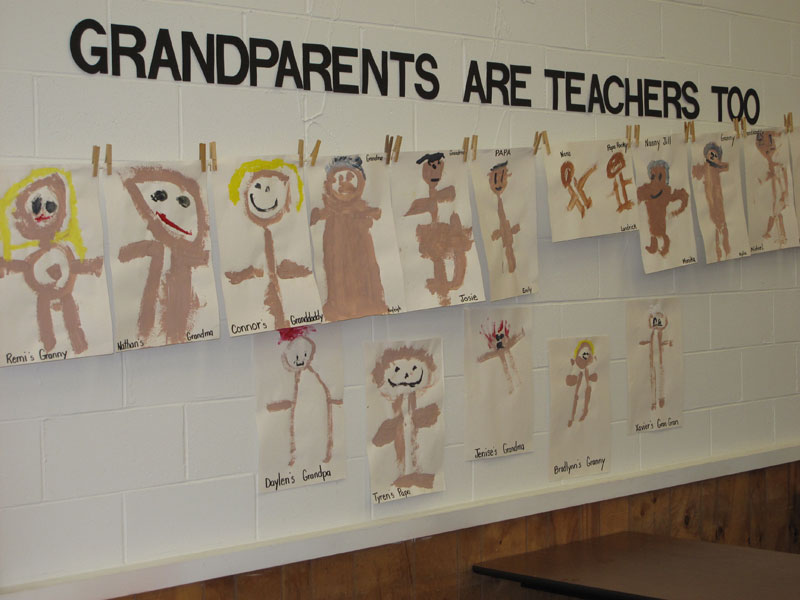 GRANDPARENTS ARE TEACHERS TOO
Remi's Granny
Nathan's Grandma
Connor's Granddaddy
Grandma
Grandma
Josie
PAPA
Emily
Nana
Papa Rocky
Landrick
Nanny Jill
Granny
Daylen's Grandpa
Tyren's Papa
Jenise's Grandma
Bradlynn's Granny
Xavier's Gran Gran